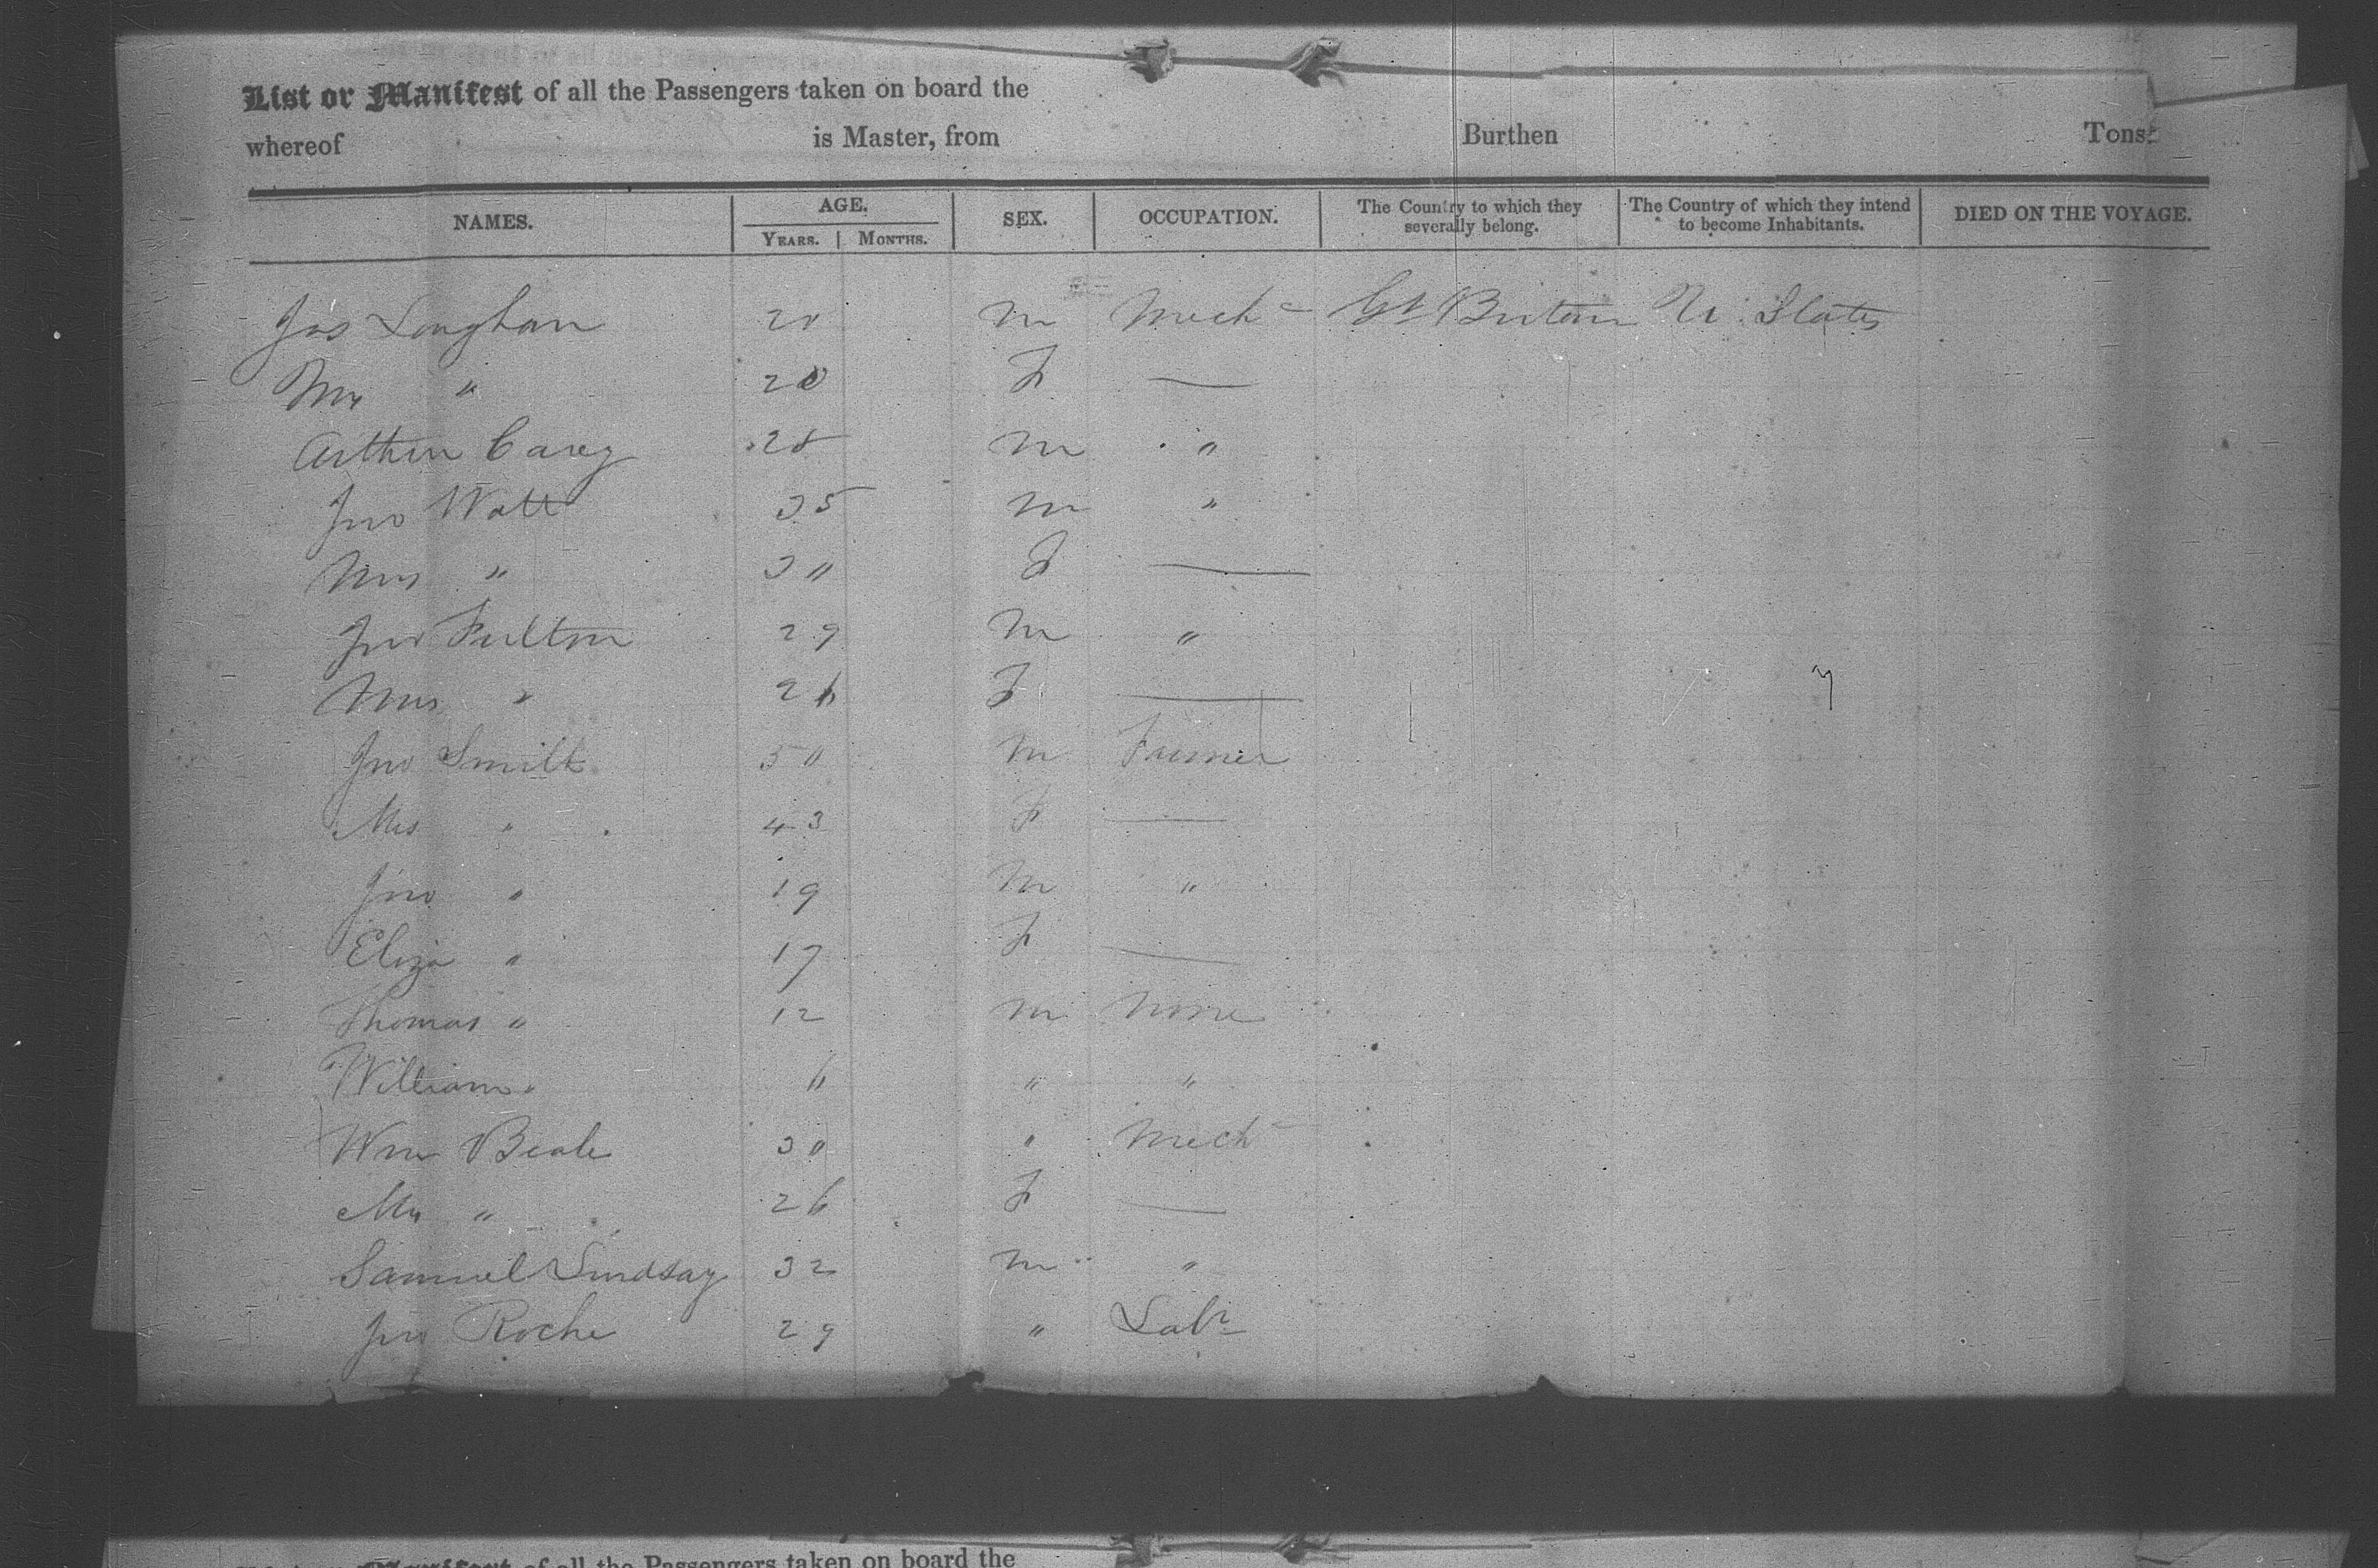 List or Manifest of all the Passengers taken on board the
whereof is Master, from Burthen Tons.
NAMES. AGE. SEX. OCCUPATION. The Country to which they severally belong. The Country of which they intend to become Inhabitants. DIED ON THE VOYAGE.
YEARS. MONTHS.
Jas Langhan 20 M Mech Gt Britain U. States
Mrs " 20 F —
Arthur Carey 28 M "
Jno Watt 35 M "
Mrs " 30 F —
Jno Fulton 29 M "
Mrs " 26 F —
Jno Smith 50 M Farmer
Mrs " 43 F —
Jno " 19 M "
Eliza " 17 F —
Thomas " 12 M None
William " 6 " "
Wm Beale 30 " Mech
Mrs " 26 F —
Samuel Lindsay 32 M "
Jno Roche 29 " Labr
List or Manifest of all the Passengers taken on board the